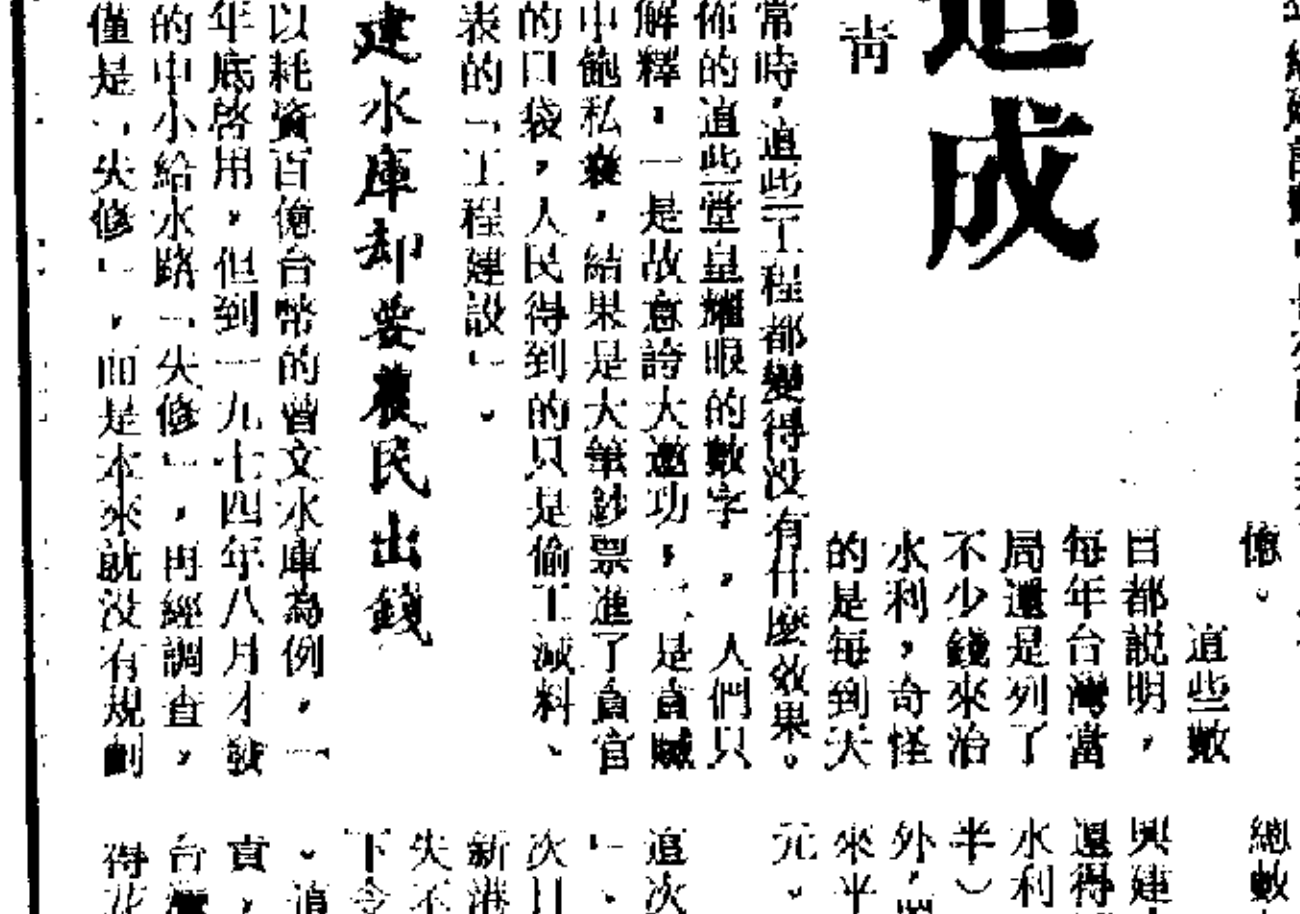 成
青
億。
這些數
目都說明，
每年台灣當
局還是列了
不少錢來治
水利，奇怪
的是每到天
常時，這些工程都變得没有什麼效果。
佈的這些堂皇耀眼的數字，人們只
解釋，一是故意誇大邀功，二是貪贓
中飽私囊，結果是大筆鈔票進了貪官
的口袋，人民得到的只是偷工減料、
表的「工程建設」。
建水庫却要農民出錢
以耗資百億台幣的曾文水庫為例，一
年底啓用，但到一九七四年八月才發
的中小給水路「失修」，再經調查，
僅是「失修」，而是本來就没有規劃
總數
興建
還得
水利
半）
外，
來平
元。
這次
」、
次日
新港
失不
下令
。這
責，
台灣
得花